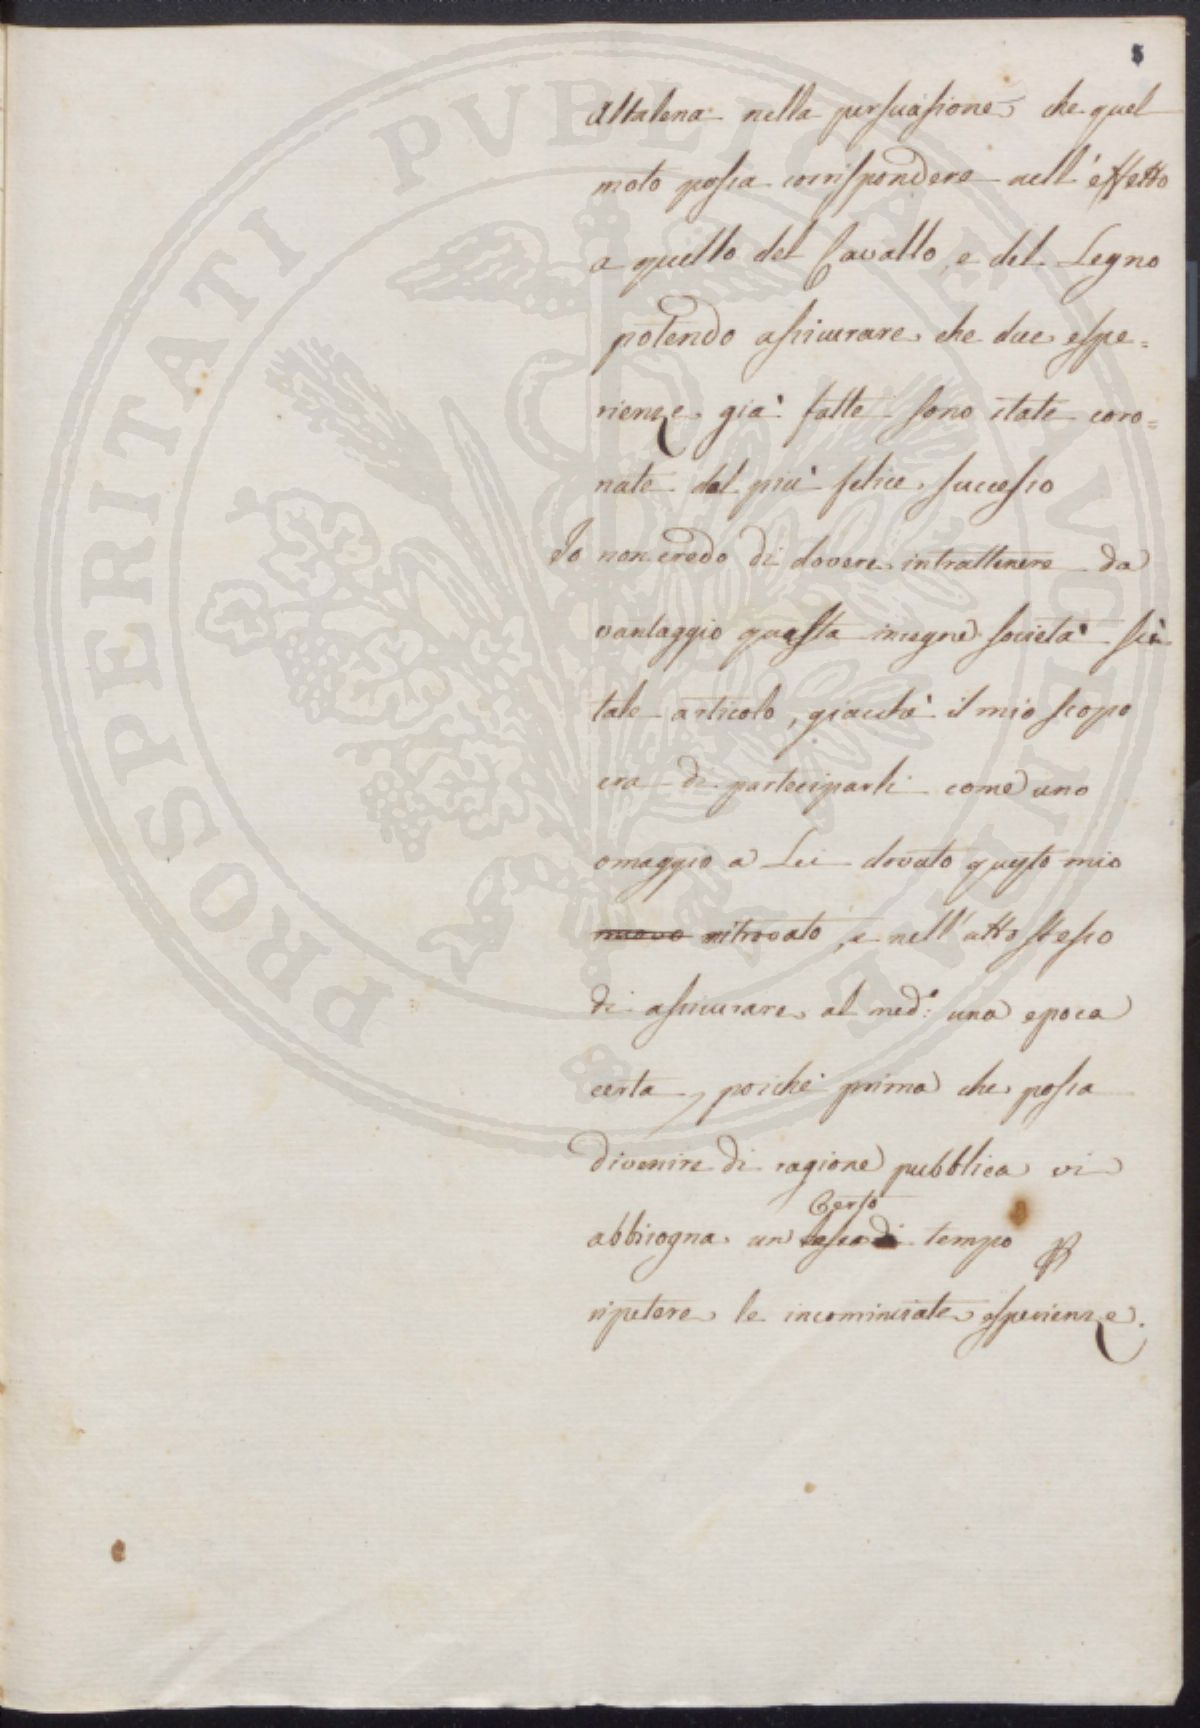 5
altalena nella persuasione che quel
moto possa corrispondere nell'effetto
a quello del Cavallo, e del Legno
potendo assicurare che due espe=
rienze già fatte sono state coro=
nate dal più felice successo
Io non credo di dovere intrattenere da
vantaggio questa insegne società su
tale articolo, giacchè il mio scopo
era di parteciparli come uno
omaggio a Lei dovuto questo mio
nuovo ritrovato, e nell'atto stesso
di assicurare al med.º una epoca
certa, poichè prima che possa
divenire di ragione pubblica vi
Certo
abbisogna un tempo
ripetere le incominciate esperienze.
PROSPERITATI PUBLICAE AUGENDAE